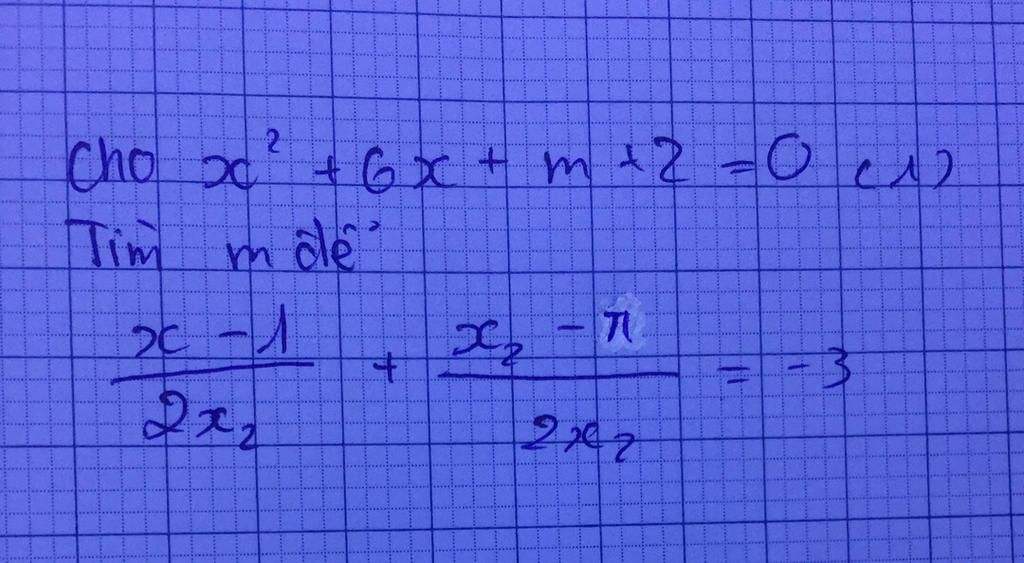 Cho x² + 6x + m + 2 = 0 (1)
Tìm m để
(x - 1)/(2x₂) + (x₂ - π)/(2x₂) = -3